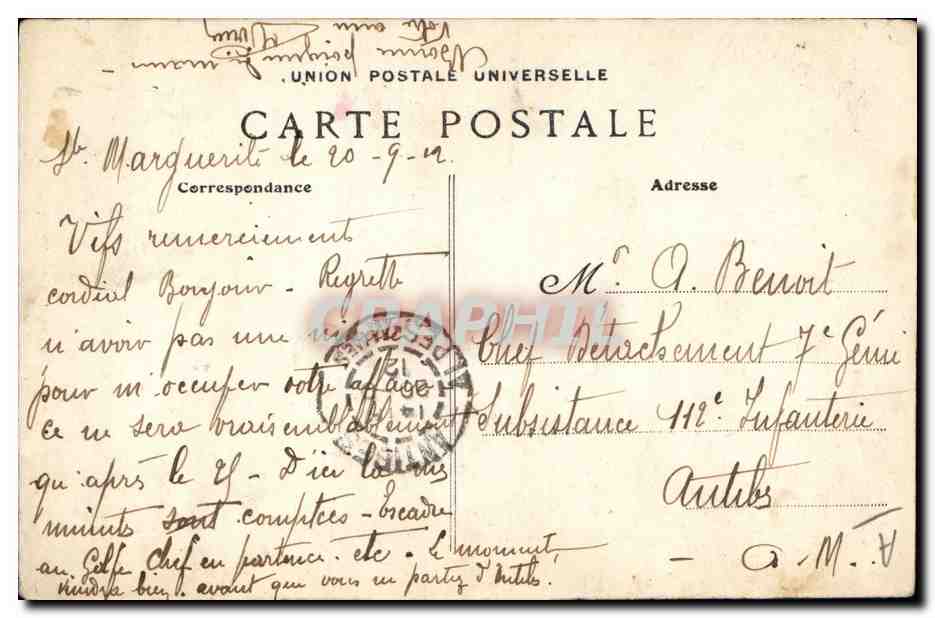 Bonne poignée de main
Votre ami
UNION POSTALE UNIVERSELLE
CARTE POSTALE
Ste Marguerite le 20-9-12.
Correspondance
Vifs remerciements
cordial Bonjour - Regrette
n'avoir pas une mi
pour m'occuper votre
ce ne sera vraisemblablement
qu'après le 25 - D'ici là mes
minuts sont comptées - Escadre
au Golfe Chef en partance. etc. Le moment
viendra bien. avant que vous ne partez d'Antibes.
Adresse
Mr A. Benoit
Chef Détachement 7e Génie
Subsistance 112e Infanterie
Antibes
- A. M. -
A
ANTIBES
14
20
12
CPAPHIL